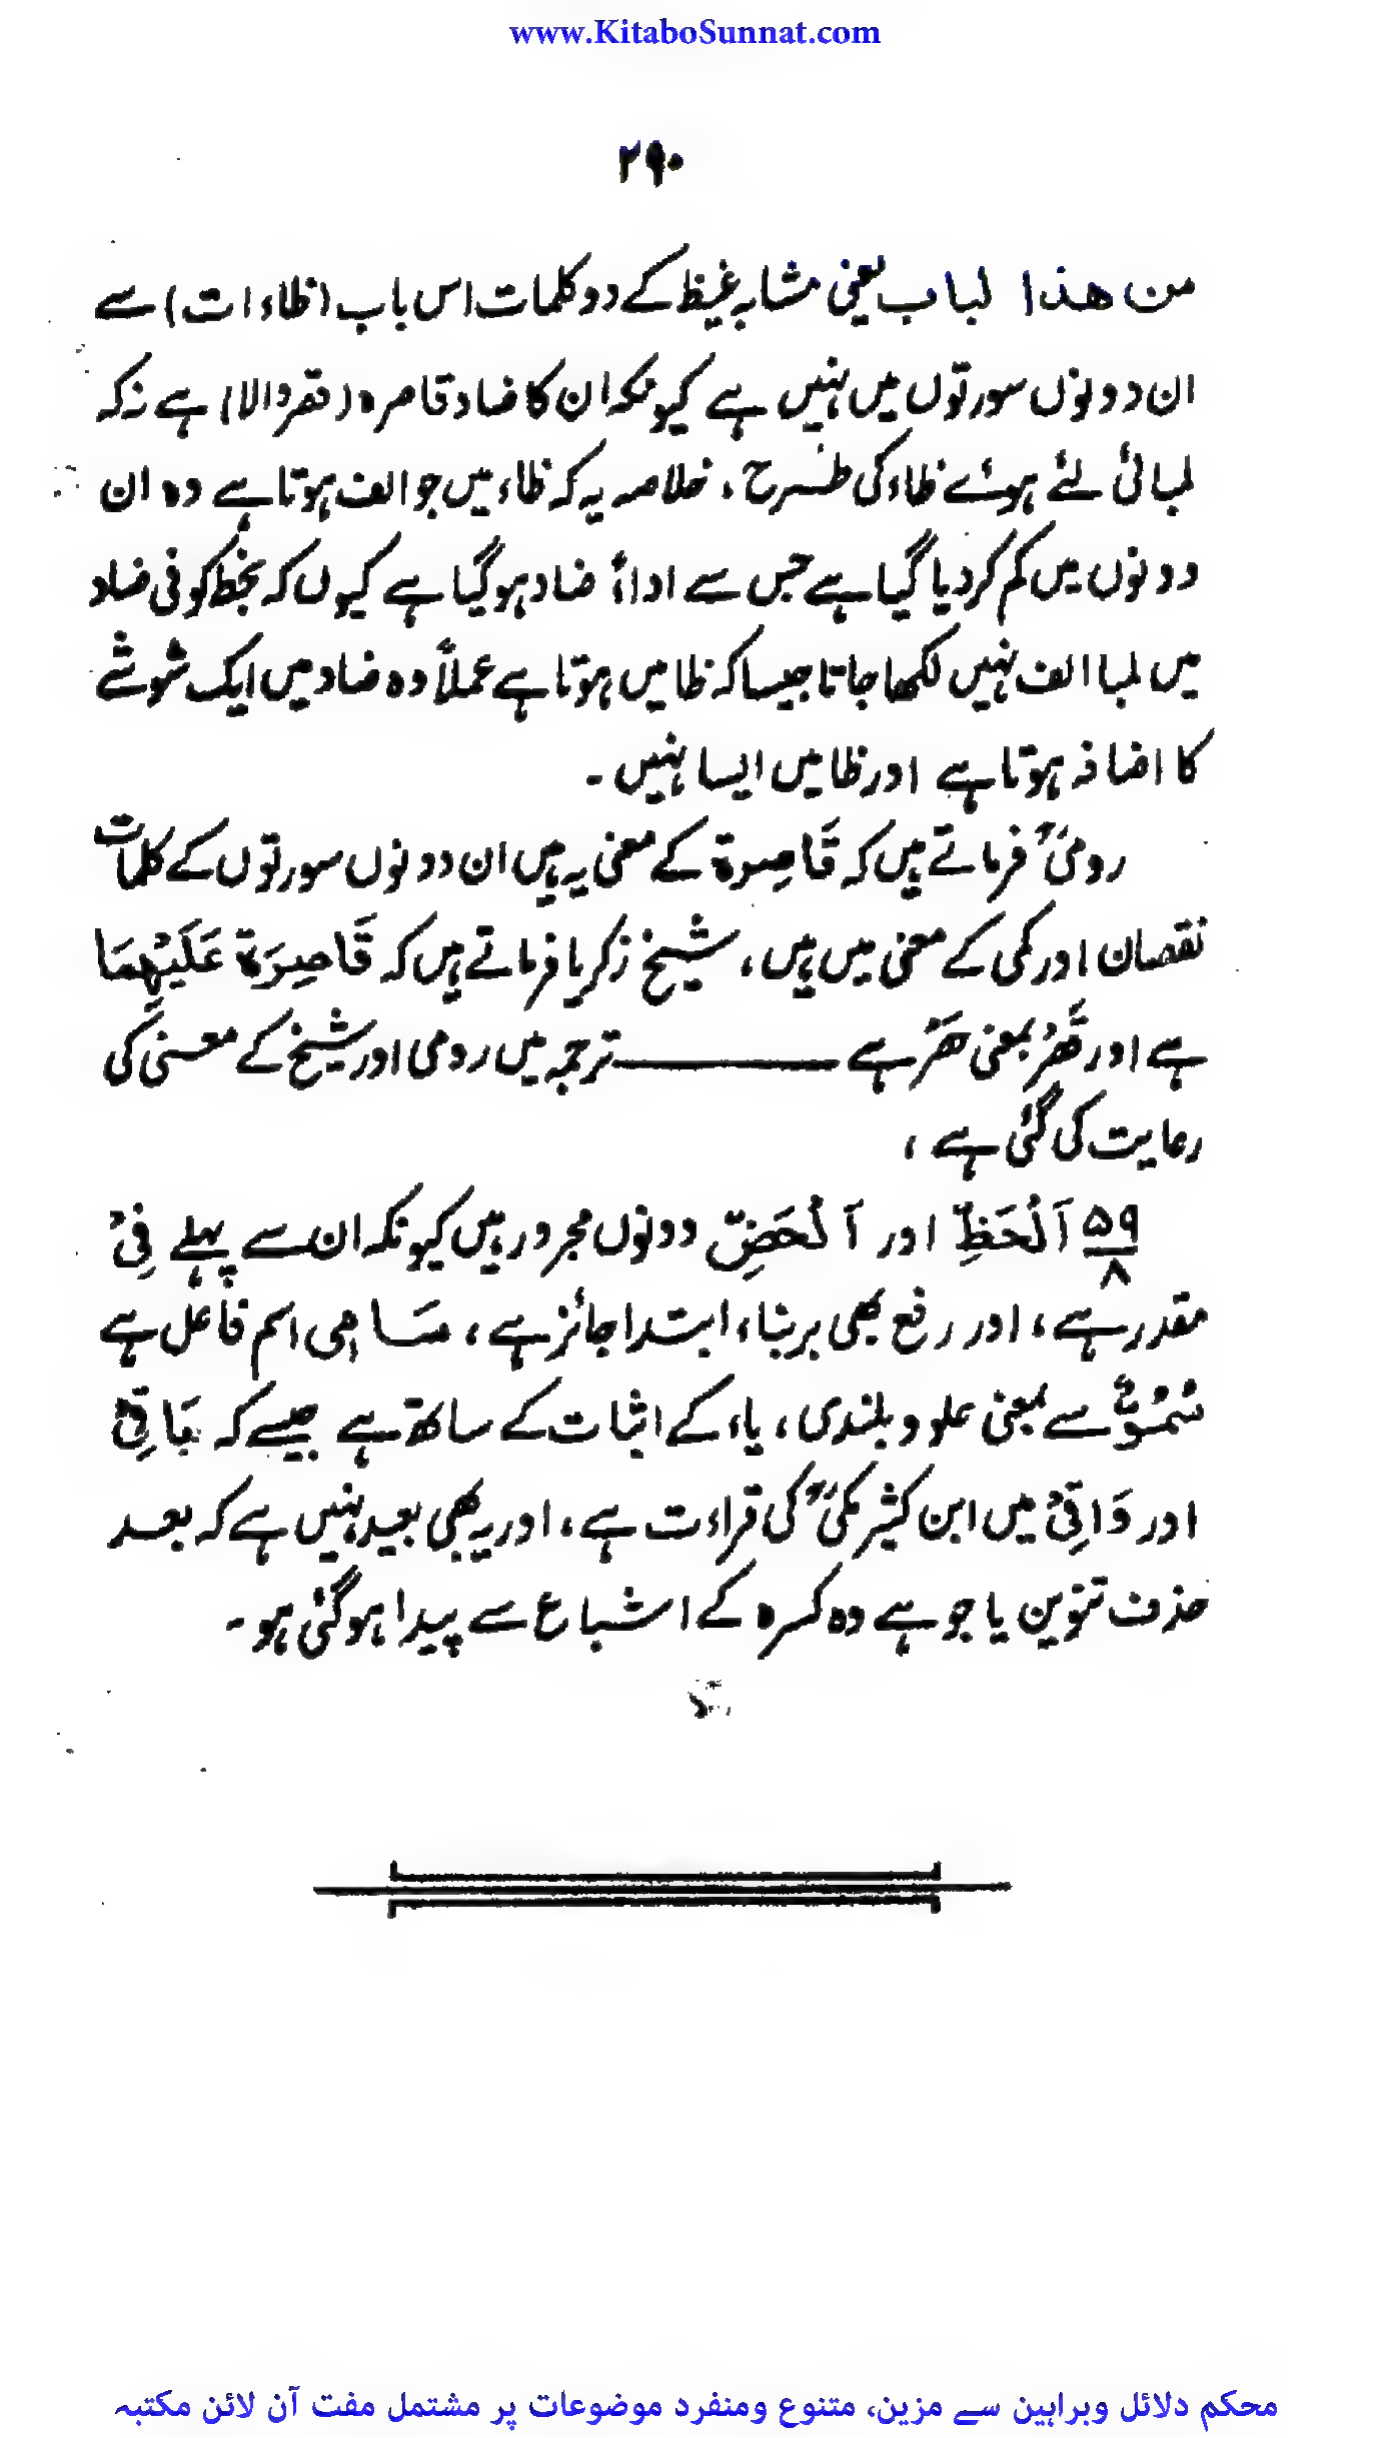 www.KitaboSunnat.com
۲۹۰
من ھذا لباب یعنی مشابہ غیظ کے دو کلمات اس باب (ظاءات) سے
ان دونوں سورتوں میں نہیں ہے کیونکہ ان کا ضاد قاصرہ (قصر والا) ہے نہ کہ
لمبائی لئے ہوئے ظاء کی طرح ، خلاصہ یہ کہ ظاء میں جو الف ہوتا ہے وہ ان
دونوں میں کم کر دیا گیا ہے جس سے اداءً ضاد ہو گیا ہے کیوں کہ بخطِ کوفی ضاد
میں لمبا الف نہیں لکھا جاتا جیسا کہ ظا میں ہوتا ہے عملاً وہ ضاد میں ایک شوشے
کا اضافہ ہوتا ہے اور ظا میں ایسا نہیں ۔
رومیؒ فرماتے ہیں کہ قَاصِرۃ کے معنی یہ ہیں ان دونوں سورتوں کے کلمات
نقصان اور کمی کے معنی میں ہیں ، شیخ زکریا فرماتے ہیں کہ قَاصِرَۃ عَلَیْہِمَا
ہے اور قَصْرٌ بمعنی حَصْرٌ ہے ــــــــ ترجمہ میں رومی اور شیخ کے معنی کی
رعایت کی گئی ہے ،
۵۹/۸ اَلْحَظِّ اور اَلْحَضِّ دونوں مجرور ہیں کیونکہ ان سے پہلے فِیْ
مقدر ہے ، اور رفع بھی بربناء ابتدا جائز ہے ، سَامِی اسم فاعل ہے
سُمُوٌّ سے بمعنی علو و بلندی ، یاء کے اثبات کے ساتھ ہے جیسے کہ بَاقِیْ
اور وَاقِیْ میں ابن کثیر مکیؒ کی قراءت ہے ، اور یہ بھی بعید نہیں ہے کہ بعد
حذف تنوین یا جو ہے وہ کسرہ کے اشباع سے پیدا ہو گئی ہو ۔
محکم دلائل وبراہین سے مزین، متنوع ومنفرد موضوعات پر مشتمل مفت آن لائن مکتبہ